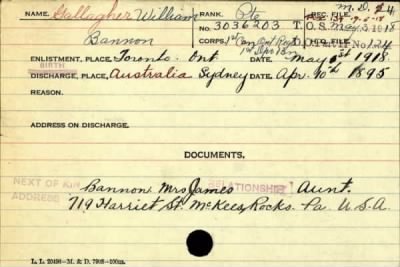 M. D. 24.
NAME, Gallagher William RANK, Pte
No 3036203 T. O. S. May 3. 1918
Bannon CORPS, 1st Can Ont Regt
1st Dpo Bn
ENLISTMENT, PLACE, Toronto. Ont DATE. May 1st 1918.
BIRTH
DISCHARGE, PLACE, Australia Sydney DATE, Apr. 10th 1895
REASON.
ADDRESS ON DISCHARGE.
DOCUMENTS.
NEXT OF KIN Bannon Mrs James RELATIONSHIP Aunt.
ADDRESS 719 Harriet St. McKees Rocks. Pa. U.S.A.
L. L. 20498—M. & D. 7908—100m.